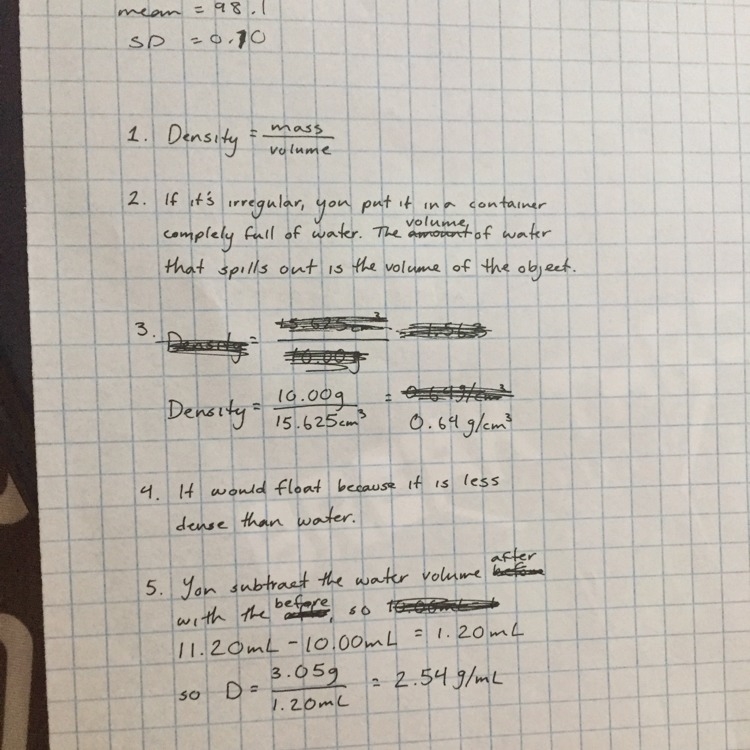 mean = 98.1
SD = 0.10
1. Density = mass / volume
2. If it's irregular, you put it in a container
complely full of water. The volume of water
that spills out is the volume of the object.
3.
Density = 10.00g / 15.625cm³ = 0.64 g/cm³
4. It would float because it is less
dense than water.
5. You subtract the water volume after
with the before, so
11.20mL - 10.00mL = 1.20mL
so D = 3.05g / 1.20mL = 2.54 g/mL